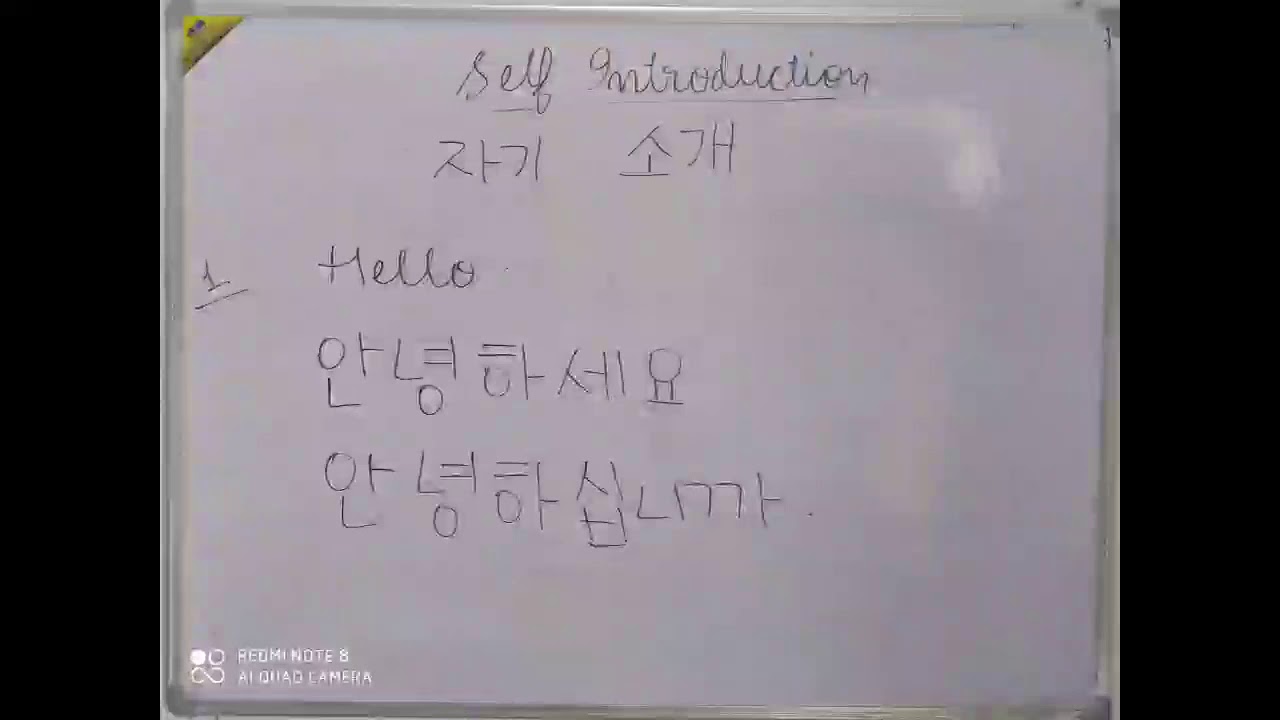 Self Introduction
자기 소개
1. Hello.
안녕하세요
안녕하십니까.
REDMI NOTE 8
AI QUAD CAMERA